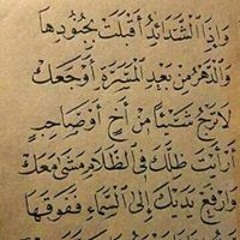 وَإِذَا الشَّدَائِدُ أَقْبَلَتْ بِجُنُودِهَا
وَالدَّهْرُ مِنْ بَعْدِ الْمَسَرَّةِ أَوْجَعَكْ
لَا تَرْجُ شَيْئًا مِنْ أَخٍ أَوْ صَاحِبٍ
أَرَأَيْتَ ظِلَّكَ فِي الظَّلَامِ مَشَى مَعَكْ
وَارْفَعْ يَدَيْكَ إِلَى السَّمَاءِ فَفَوْقَهَا